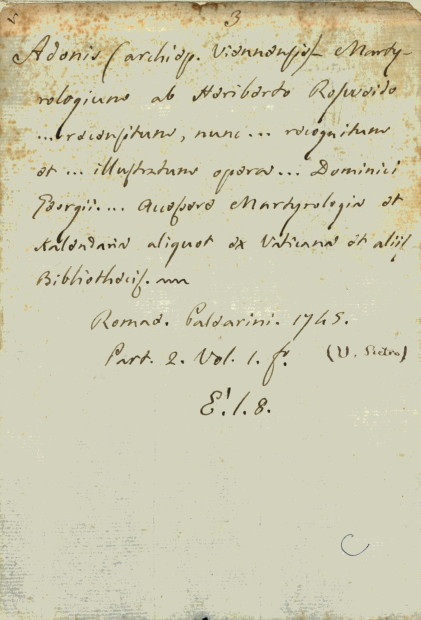 3
Adonis (archiep. Viennensis) Marty-
rologium ab Heriberto Rosweido
... recensitum, nunc ... recognitum
et ... illustratum opera ... Dominici
Georgii ... Accessere Martyrologia et
Kalendaria aliquot ex Vaticana et aliis
Bibliothecis.
Romae. Palearini. 1745.
Part. 2. Vol. 1. fº. (V. Retro)
E'. 1. 8.